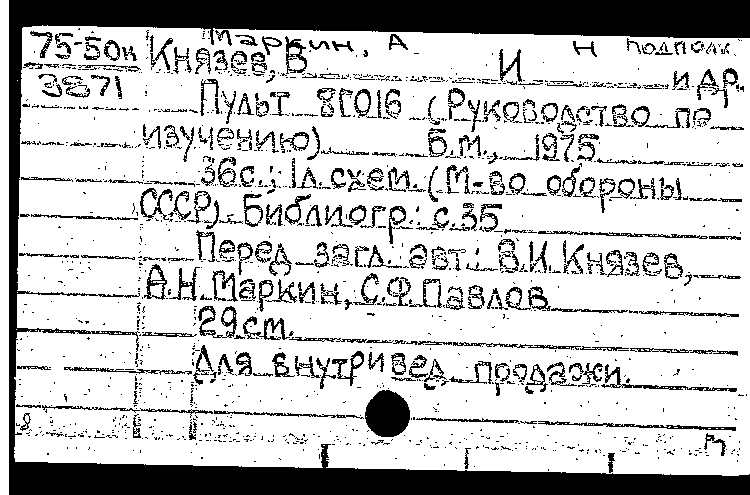 Маркин, А Н подполк.
75-50к Князев, В И и др.
3871
Пульт 8Г016 (Руководство по
изучению) Б.м., 1975
36с.; 1л.схем. (М-во обороны
СССР). Библиогр.: с.35
Перед загл. авт.: В.И.Князев,
А.Н.Маркин, С.Ф.Павлов
29см.
Для внутривед. продажи.